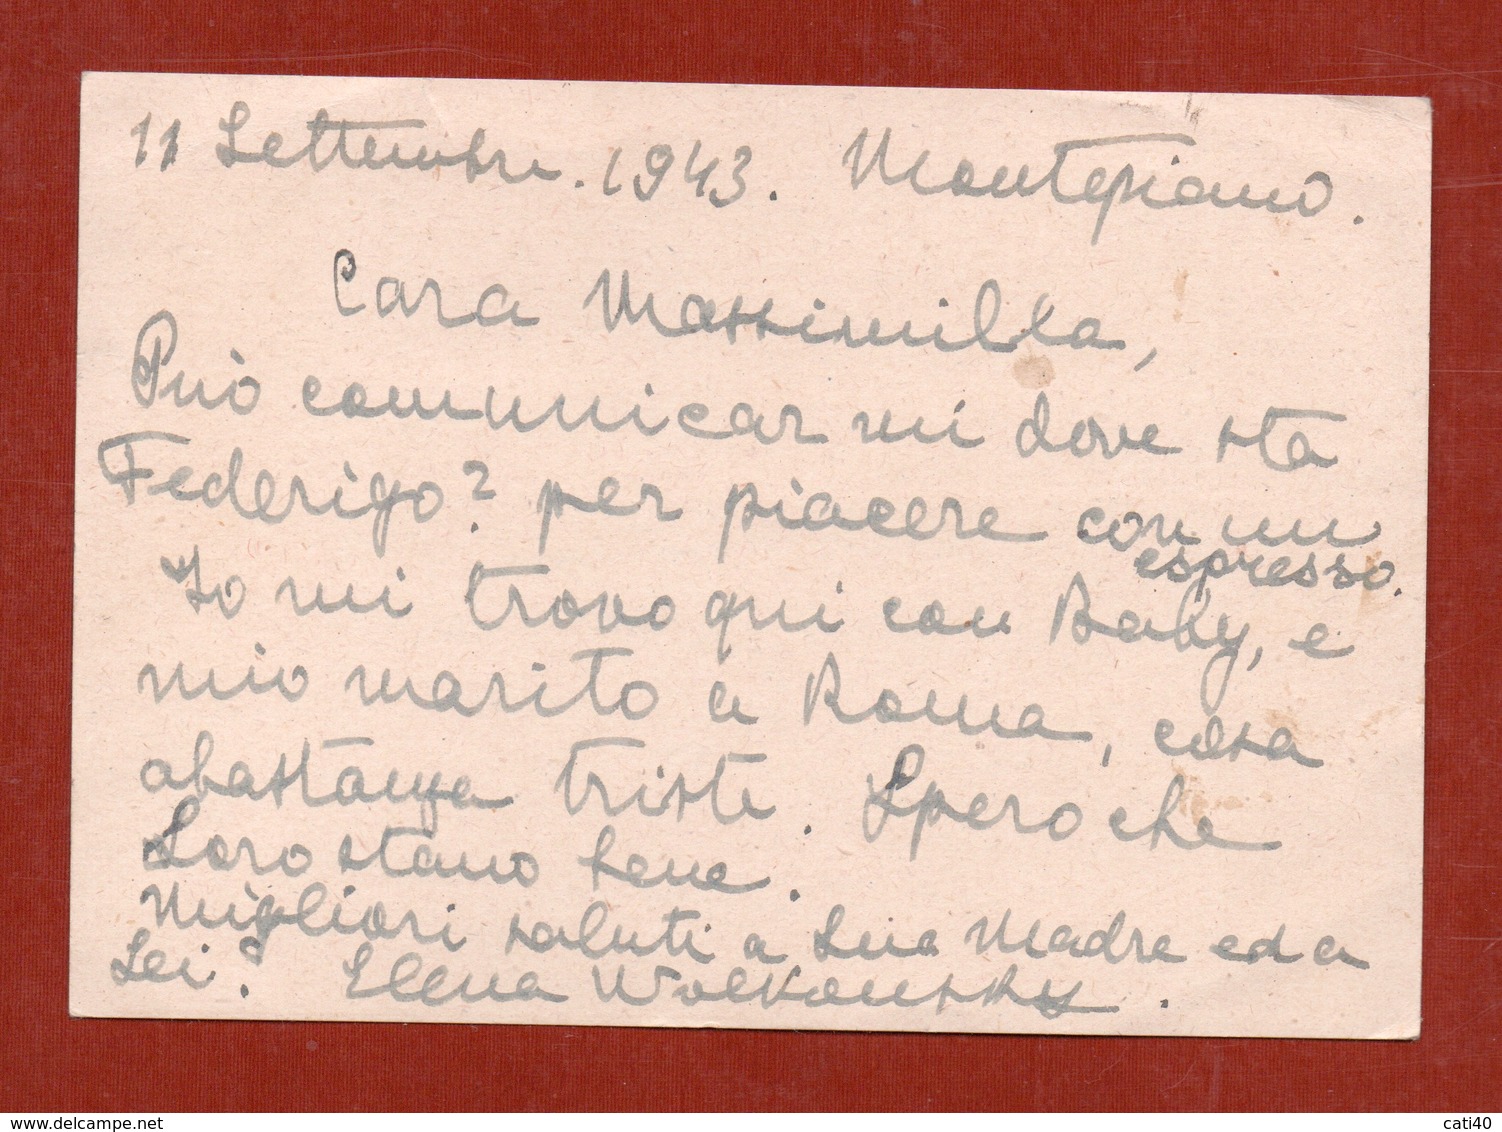 11 Settembre. 1943. Montepiano.
Cara Massimilla,
Può comunicarmi dove sta
Federigo? per piacere con un
espresso.
Io mi trovo qui con Baby, e
mio marito a Roma, cosa
abastanza triste. Spero che
Loro stano bene.
Migliori saluti a Sua Madre ed a
Lei? Elena Wolkonsky.
cati40
delcampe.net